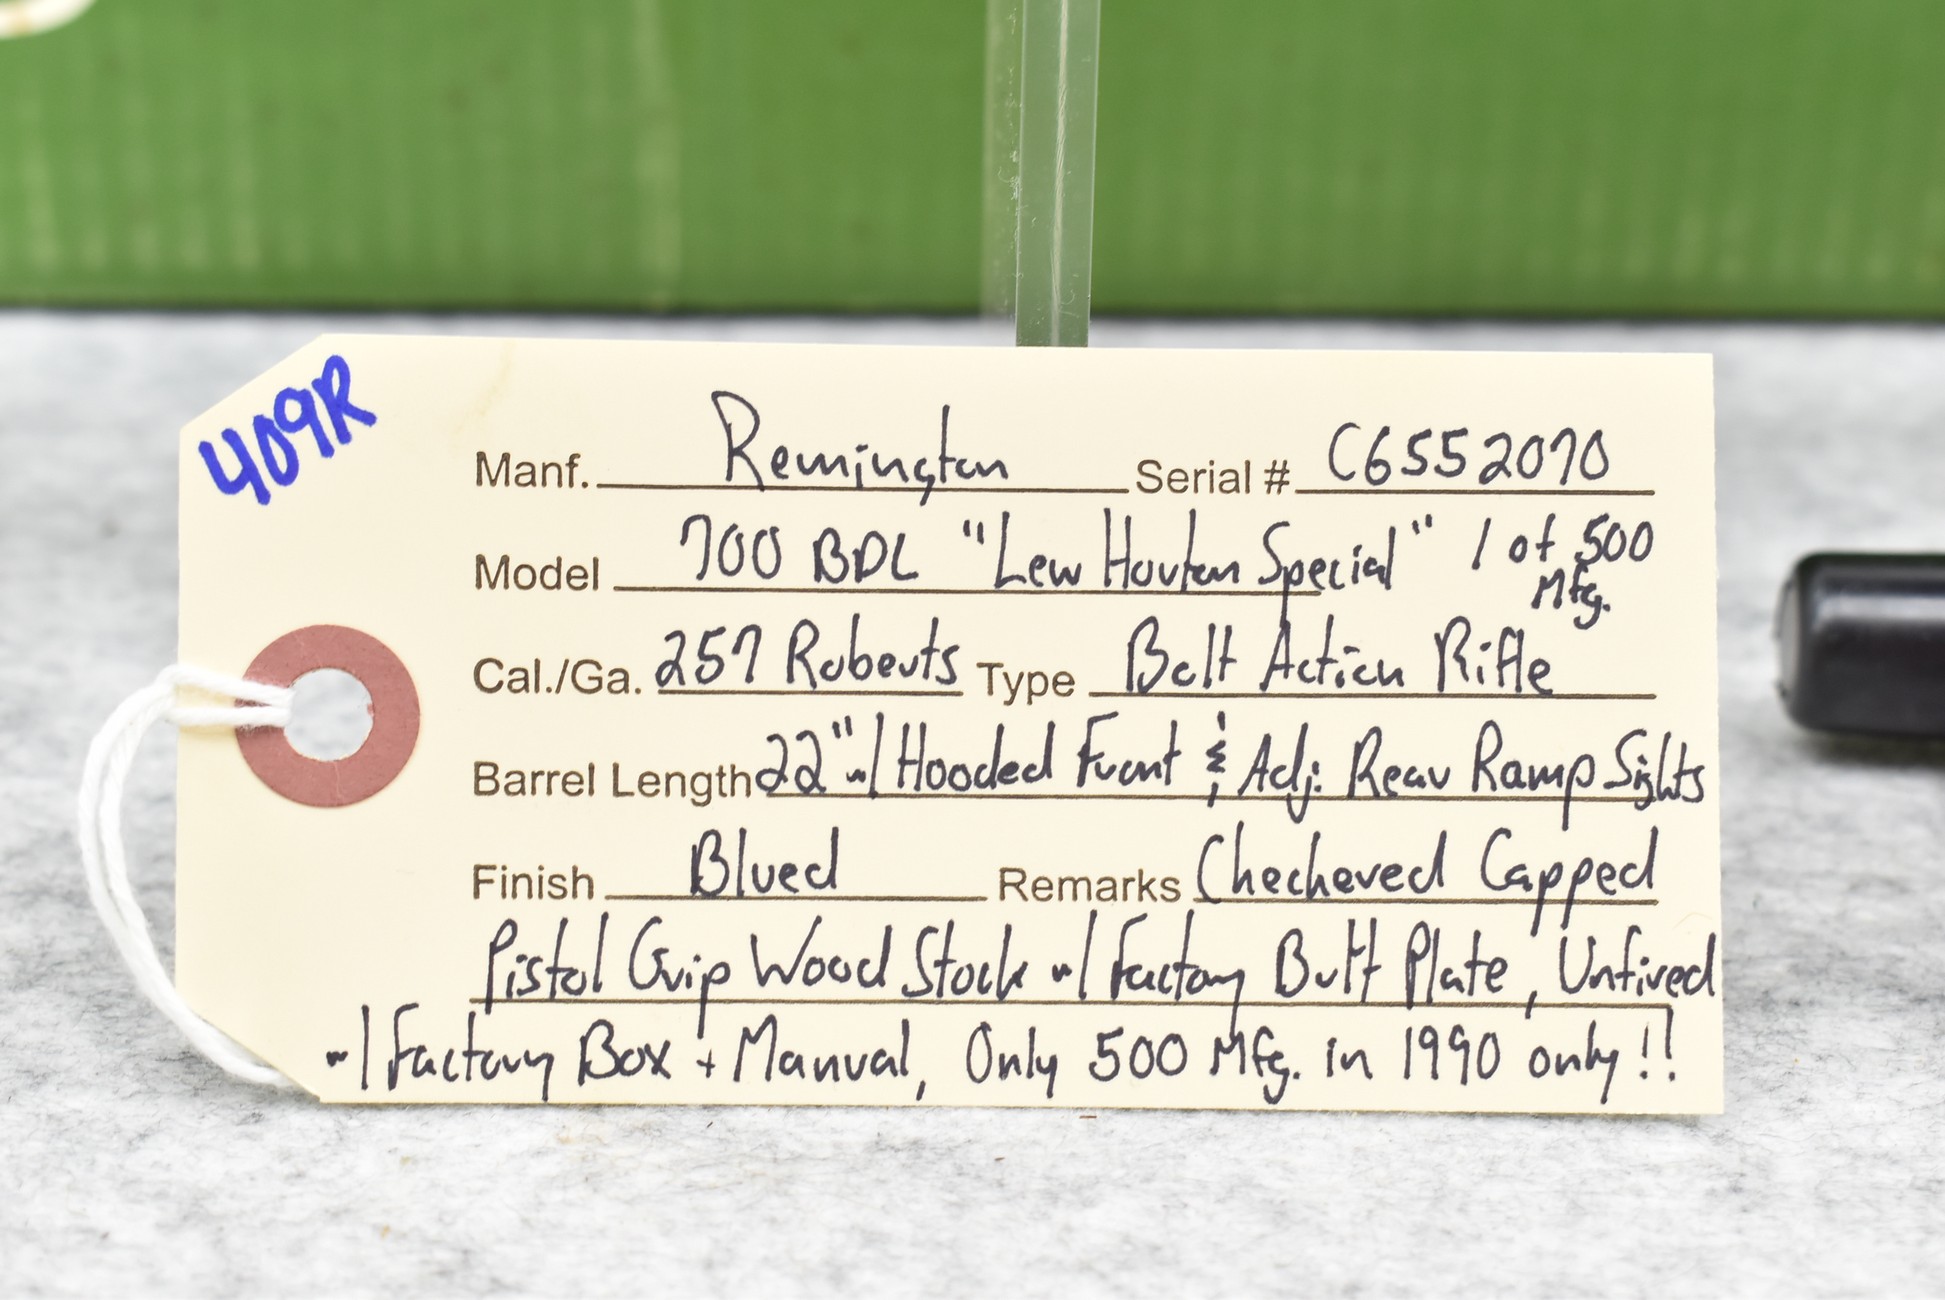 409R
Manf. Remington Serial # C6552070
Model 700 BDL "Lew Horton Special" 1 of 500
Mfg.
Cal./Ga. 257 Roberts Type Bolt Action Rifle
Barrel Length 22" w/ Hooded Front & Adj. Rear Ramp Sights
Finish Blued Remarks Checkered Capped
Pistol Grip Wood Stock w/ Factory Butt Plate, Unfired
w/ Factory Box + Manual, Only 500 Mfg. in 1990 only!!